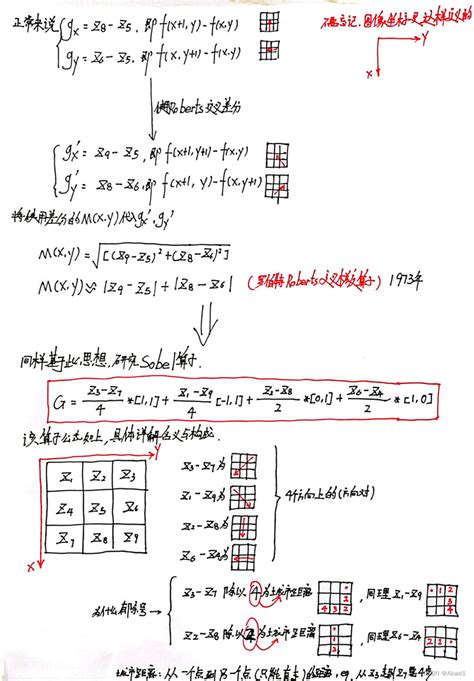 正常来说 { gx = Z8 - Z5, 即 f(x+1, y) - f(x.y)
gy = Z6 - Z5, 即 f(x, y+1) - f(x.y)
不要忘记. 图像坐标是这样定义的
y
x
使用Roberts交叉差分
{ gx' = Z9 - Z5, 即 f(x+1, y+1) - f(x.y)
gy' = Z8 - Z6, 即 f(x+1, y) - f(x, y+1)
将使用差分的M(x,y)代入gx', gy'
M(x,y) = √[(Z9-Z5)²+(Z8-Z6)²]
M(x,y) ≈ |Z9-Z5| + |Z8-Z6| (罗伯特Roberts交叉梯度算子) 1973年
同样基于此思想, 研究Sobel算子.
G = (Z3-Z7)/4 *[1,1] + (Z1-Z9)/4 [-1,1] + (Z2-Z8)/2 *[0,1] + (Z6-Z4)/2 *[1,0]
该算子公式如上, 具体详解含义与构成.
y
x
Z1 Z2 Z3
Z4 Z5 Z6
Z7 Z8 Z9
Z3-Z7为
Z1-Z9为
Z2-Z8为
Z6-Z4为
4个方向上的(方向对)
为什么有除号
Z3-Z7 除以4为城市距离
1
2
4 3 2
, 同理Z1-Z9
1 2
3
4
Z2-Z8 除以2为城市距离
1
2
, 同理Z6-Z4
2 1
城市距离: 从一个点到另一个点(只能直走)的距离, eg, 从Z3到Z7是4步
CSDN @Akaxi1